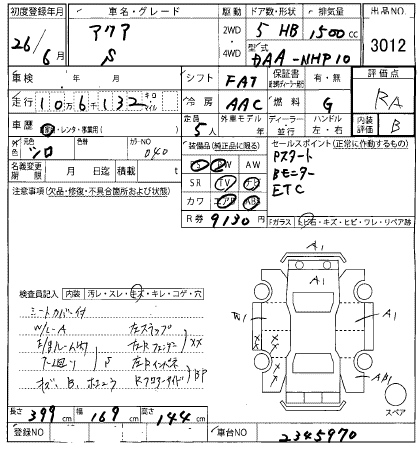 初度登録年月 車名・グレード 駆動 ドア数・形状 排気量 出品NO
26/6 アクア S 2WD 4WD 5 HB 1500cc 3012
型式 DAA-NHP10
車検 年 月 シフト FAT 保証書 有・無 評価点
走行 10万6132 キロ マイル 冷房 AAC 燃料 G RA
車歴 レンタ・事業用( ) 定員 5人 外車モデル 年 ディーラー 並行 ハンドル 左・右 内装評価 B
外色 元色 シロ 色替 カラーNO 040
装備品(純正品に限る) セールスポイント(正常に作動するもの)
名義変更期限 月 日迄 積載 t
S PW AW Pスタート
SR TV ナビ Bモニター
カワ エアB ABS ETC
R券 9130円
注意事項(欠品・修復・不具合箇所および状態)
Fガラス トビ石・キズ・ヒビ・ワレ・リペア跡
検査員記入 内装 汚レ・スレ・キズ・キレ・コゲ・穴
シートカバー付
W/L-A 左ステップ
左Rフェンダー XX
S 左Rインパネ
キズ、B、 BP
A1
A1
W1 A1
XX
スペア
長さ 399cm 幅 169cm 高さ 144cm
登録NO 車台NO 2345970